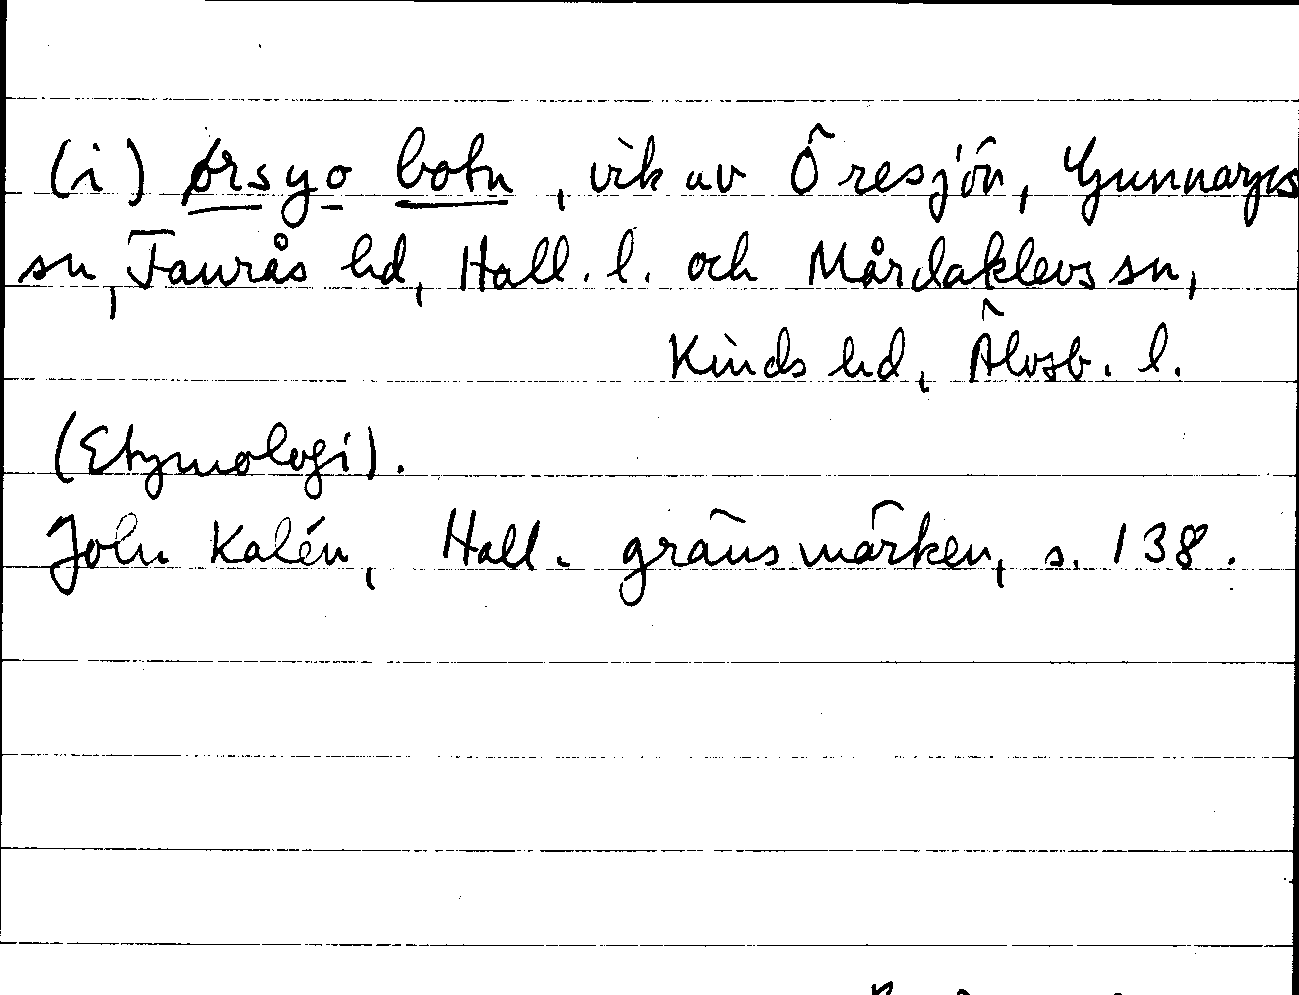 (i) ørsyo botn, vik av Öresjön, Gunnarps
sn, Faurås hd, Hall. l. och Mårdaklevs sn,
Kinds hd, Älvsb. l.
(Etymologi).
John Kalén, Hall. gränsmärken, s. 138.